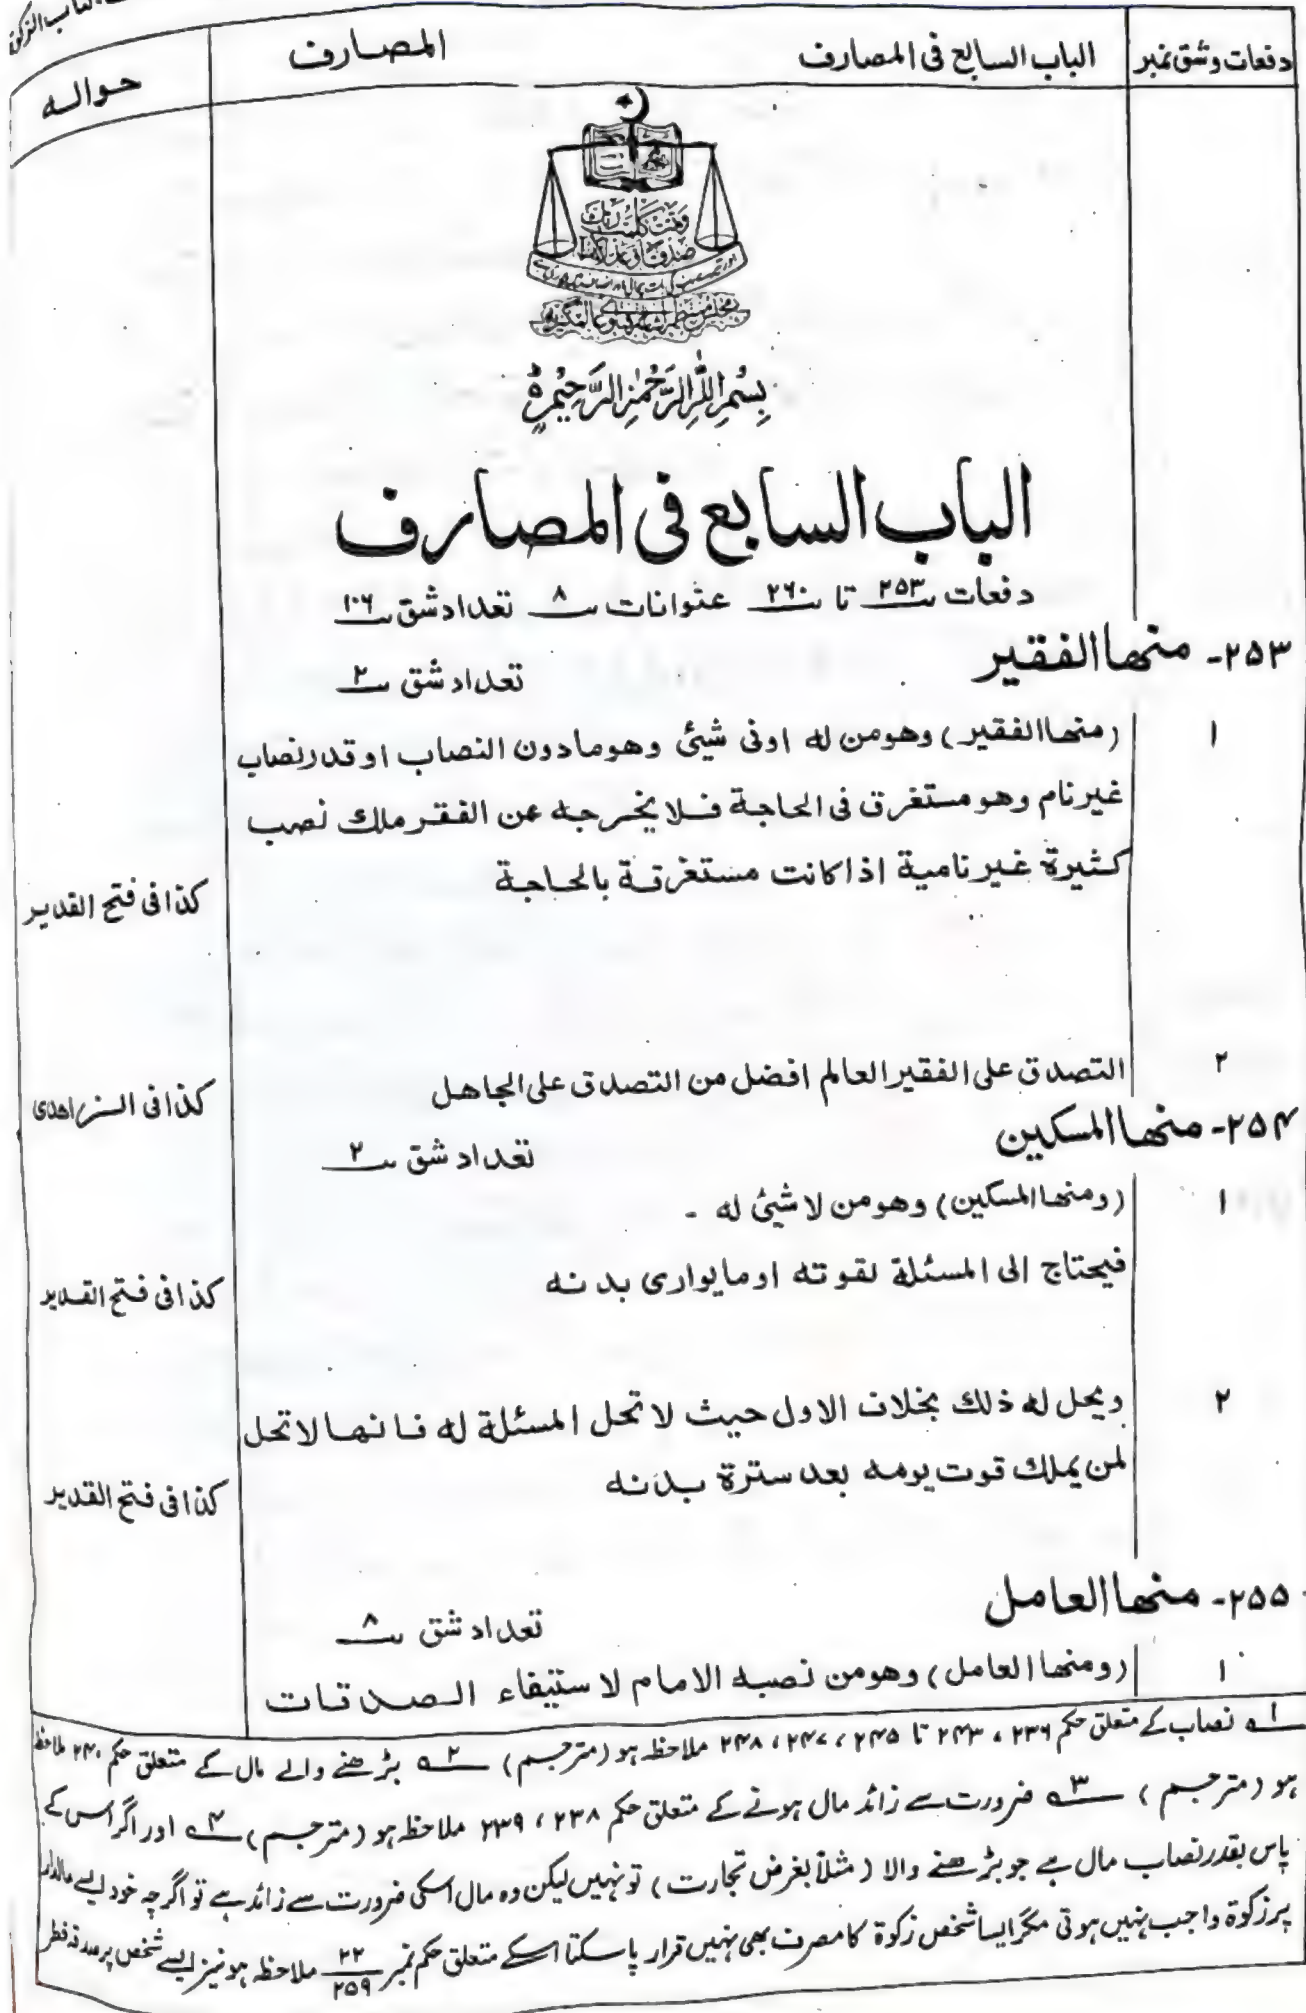 کتاب الزکوٰۃ
دفعات وشق نمبر
الباب السابع فی المصارف
المصارف
حوالہ
وتمت كلمت ربك
صدقا وعدلا
بسم الله الرحمن الرحيم
الباب السابع فی المصارف
دفعات ۲۵۳ تا ۲۶۰ عنوانات ۸ تعداد شق ۱۰۶
۲۵۳- منها الفقیر
تعداد شق ۲
۱ (منها الفقیر) وهو من له اونی شیئ وهو مادون النصاب او قدر نصاب
غیر نام وهو مستغرق فی الحاجة فلا یخرجه عن الفقر ملك نصب
کثیرة غیر نامیة اذا کانت مستغرقة بالحاجة
کذا فی فتح القدیر
۲ التصدق علی الفقیر العالم افضل من التصدق علی الجاهل
کذا فی الزاهدی
۲۵۴- منها المسکین
تعداد شق ۲
۱ (ومنها المسکین) وهو من لا شیئ له -
فیحتاج الی المسئلة لقوته او ما یواری بدنه
کذا فی فتح القدیر
۲ ویحل له ذلك بخلاف الاول حیث لا تحل المسئلة له فانها لا تحل
لمن یملك قوت یومه بعد سترة بدنه
کذا فی فتح القدیر
۲۵۵- منها العامل
تعداد شق ۸
۱ (ومنها العامل) وهو من نصبه الامام لاستیفاء الصدقات
۱ نصاب کے متعلق حکم ۲۳۶، ۲۴۳ تا ۲۴۵، ۲۴۷، ۲۴۸ ملاحظہ ہو (مترجم) ۲ بڑھنے والے مال کے متعلق حکم ۲۴۰ ملاحظہ
ہو (مترجم) ۳ ضرورت سے زائد مال ہونے کے متعلق حکم ۲۳۸، ۲۳۹ ملاحظہ ہو (مترجم) ۴ اور اگر اس کے
پاس بقدر نصاب مال ہے جو بڑھنے والا (مثلاً بغرض تجارت) تو نہیں لیکن وہ مال اسکی ضرورت سے زائد ہے تو اگرچہ خود ایسے مالدار
پر زکوٰۃ واجب نہیں ہوتی مگر ایسا شخص زکوٰۃ کا مصرف بھی نہیں قرار پاسکتا اسکے متعلق حکم نمبر ۲۲/۲۵۹ ملاحظہ ہو نیز ایسے شخص پر صدقہ فطر